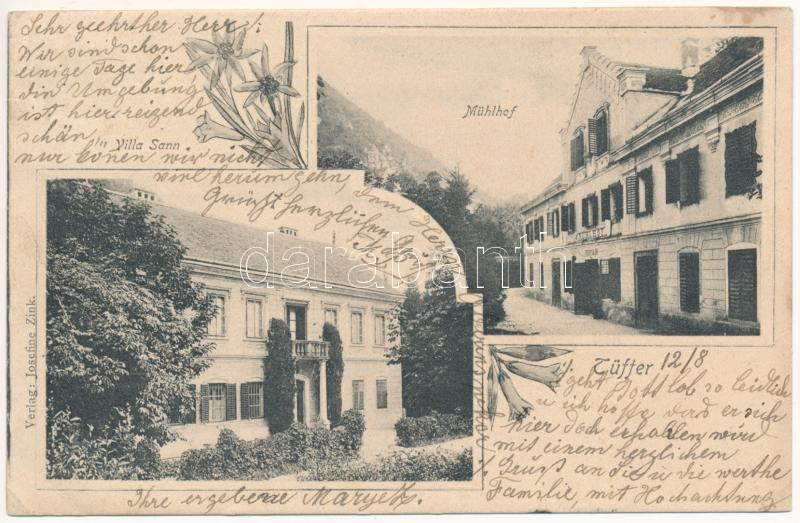 Sehr geehrther Herr!
Wir sind schon
einige Tage hier
din Umgebung
ist hier reizend
schön,
"Villa Sann
nur könen wir nicht
viel herum gehn,
Grüßt herzlichen
dem Herrn
Mühlhof
Verlag: Josefine Zink.
Tüffer 12/8
geht Gott lob so leidlich
u ich hoffe das er sich
hier doch erhollen wird
mit einem herzlichem
Gruss an die u die werthe
Familie, mit Hochachtung
Ihre ergebene
darabanth